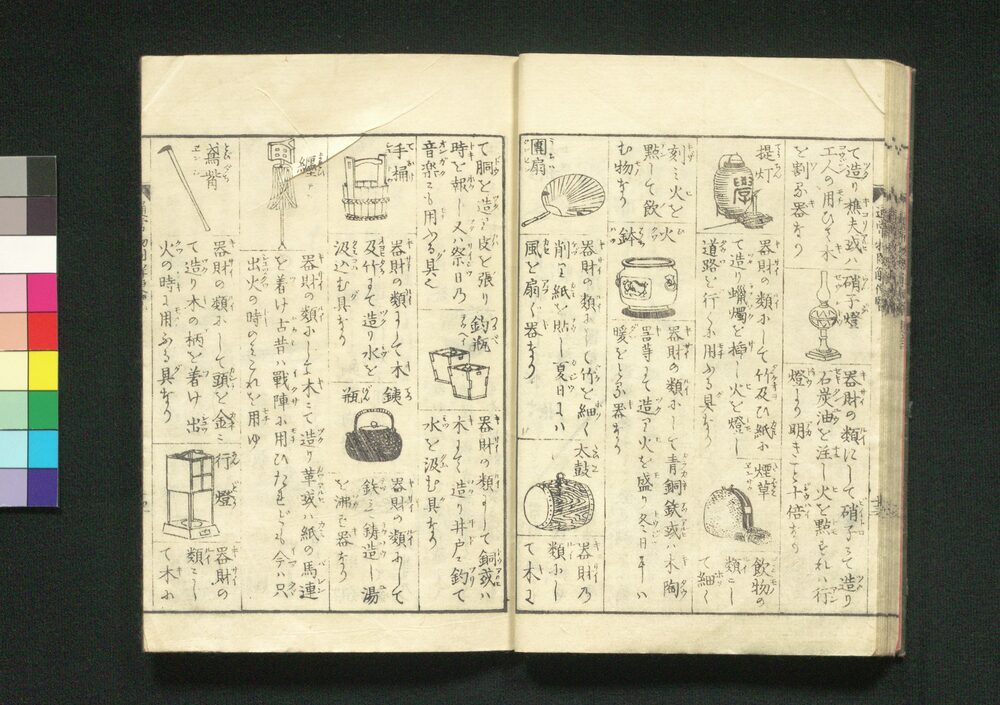 て造り樵夫或ハ
工人の用ひて木
を割る器なり
硝子燈
器財の類にして硝子にて造り
石炭油を注し火を點ずれハ行
燈より明きこと十倍なり
提灯
器財の類にして竹及ひ紙にて
造り蠟燭を挿し火を燈し
道路を行くに用ふる具なり
煙草
飲物の
類にし
て細く
刻ミ火を
點して飲
む物なり
火鉢
器財の類にして青銅鉄或ハ木陶
器等にて造り火を盛り冬日
暖をとる器なり
團扇
器財の類にして竹を細く
削り紙を貼し夏日に
風を扇く器なり
太鼓
器財乃
類にし
て木に
て胴を造り皮を張り
時を報し又ハ祭日乃
音楽にも用ふる具
釣瓶
器財の類にして銅或ハ
木にて造り井戸に釣て
水を汲む具なり
手桶
器財の類にして木
及竹にて造り水を
汲込む具なり
鉄瓶
器財の類にして
鉄にて鋳造し湯
を沸す器なり
纏
器財の類にして木にて造り革或ハ紙の馬連
を着け古昔ハ戰陣に用ひたれども今ハ只
出火の時のミこれを用ゆ
鳶觜
器財の類にして頭を金に
て造り木の柄を着け出
火の時に用ふる具なり
行燈
器財の
類にし
て木に